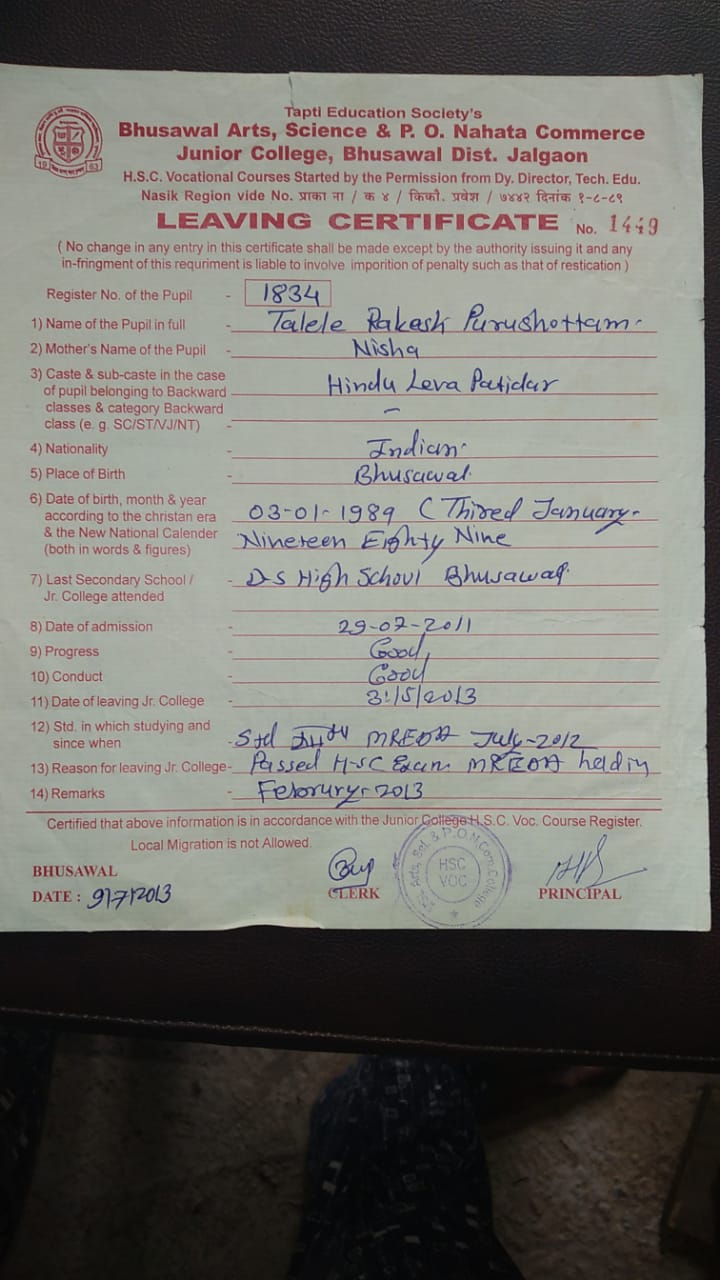 Tapti Education Society's
Bhusawal Arts, Science & P. O. Nahata Commerce
Junior College, Bhusawal Dist. Jalgaon
H.S.C. Vocational Courses Started by the Permission from Dy. Director, Tech. Edu.
Nasik Region vide No. प्राका ना / क ४ / किकौ. प्रवेश / ७४४२ दिनांक १-८-८९
LEAVING CERTIFICATE No. 1449
( No change in any entry in this certificate shall be made except by the authority issuing it and any
in-fringment of this requriment is liable to involve imporition of penalty such as that of restication )
Register No. of the Pupil - 1834
1) Name of the Pupil in full - Talele Rakesh Purushottam.
2) Mother's Name of the Pupil - Nisha
3) Caste & sub-caste in the case
of pupil belonging to Backward - Hindu Leva Patidar
classes & category Backward –
class (e. g. SC/ST/VJ/NT) -
4) Nationality - Indian.
5) Place of Birth - Bhusawal.
6) Date of birth, month & year
according to the christan era - 03-01-1989 ( Thired January-
& the New National Calender Nineteen Eighty Nine
(both in words & figures)
7) Last Secondary School / - D-S High School Bhusawal
Jr. College attended
8) Date of admission - 29-07-2011
9) Progress - Good
10) Conduct - Good
11) Date of leaving Jr. College - 31/5/2013
12) Std. in which studying and
since when - Std July-2012
13) Reason for leaving Jr. College - Passed H-SC Exam held in
14) Remarks - Februry-2013
Certified that above information is in accordance with the Junior College H.S.C. Voc. Course Register.
Local Migration is not Allowed.
BHUSAWAL
DATE : 9/7/2013 CLERK HSC VOC PRINCIPAL